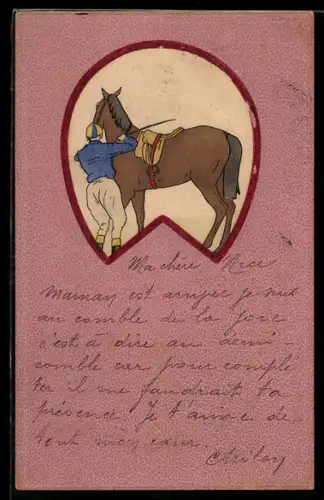 Ma chère
Maman est arrivée je suis
au comble de la joie
c'est à dire au demi-
comble car pour comple
ter il me faudrait ta
présence. Je t'aime de
tout mon cœur.